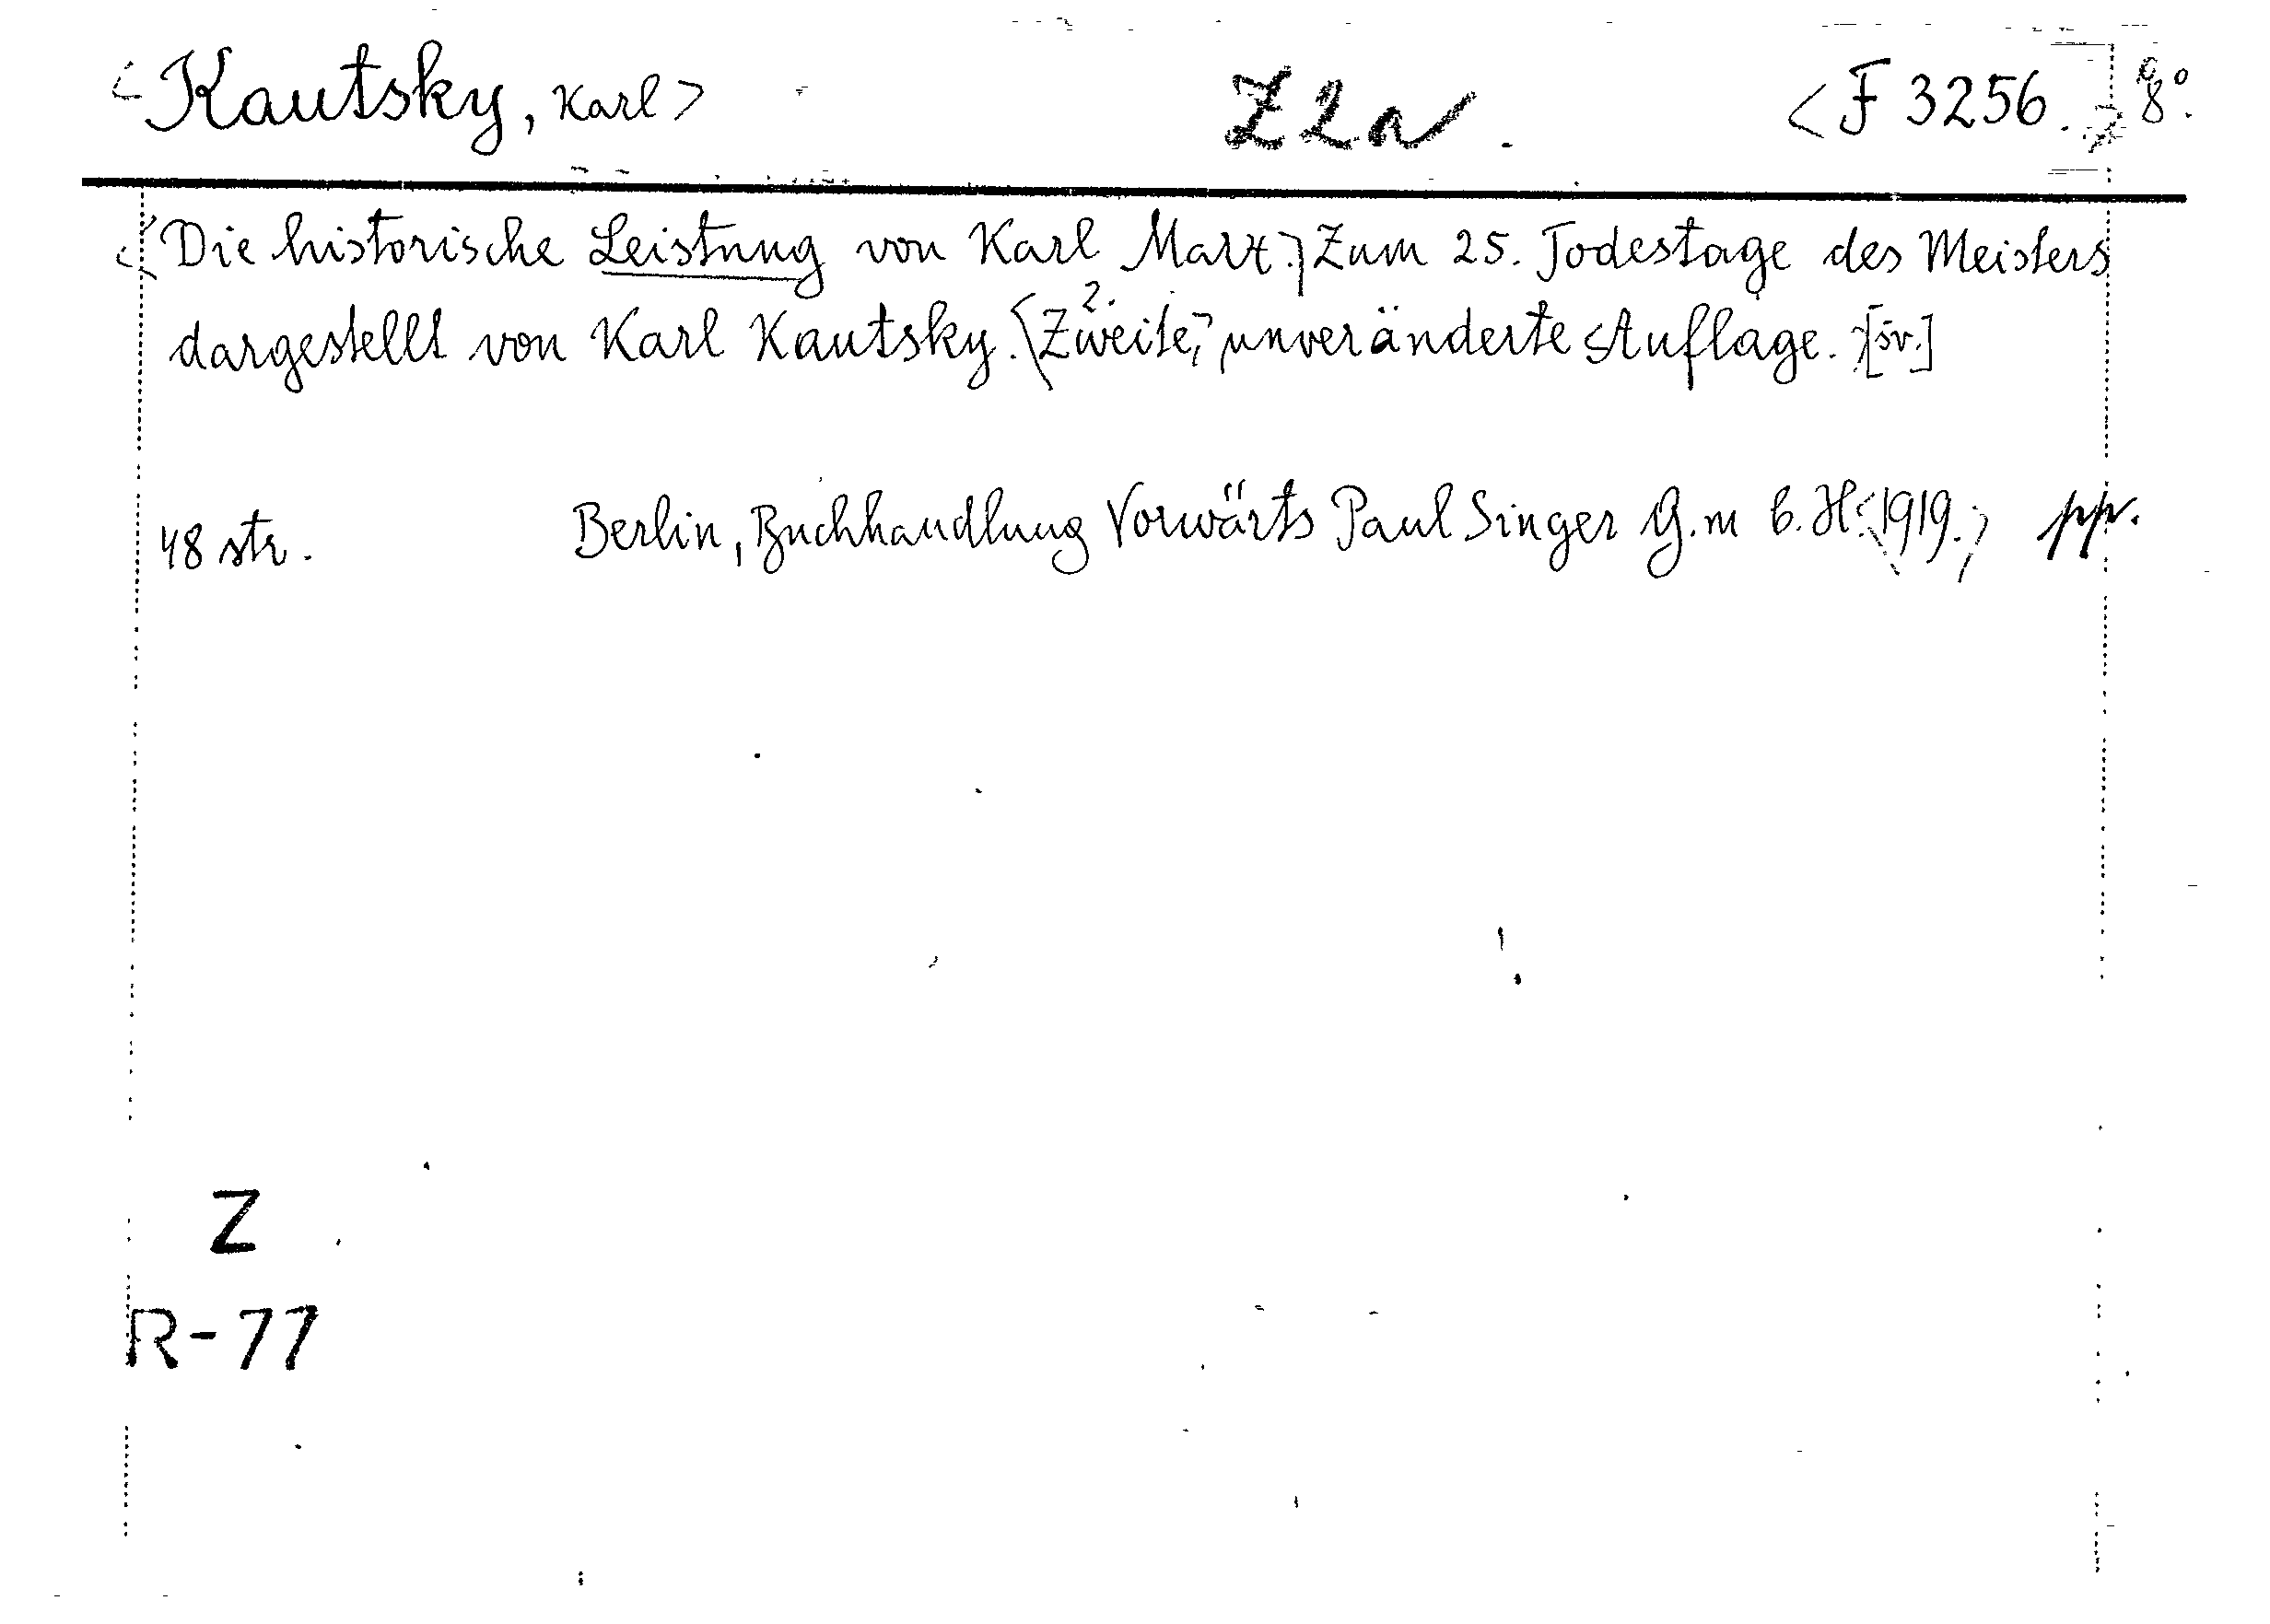 <Kautsky, Karl> Z2a. <F 3256.> 8°.
<Die historische Leistung von Karl Marx.> Zum 25. Todestage des Meisters
dargestellt von Karl Kautsky. <Zweite, 2. unveränderte Auflage.> [sv.]
48 str. Berlin, Buchhandlung Vorwärts Paul Singer G. m b. H. <1919.> pp.
Z
R-77